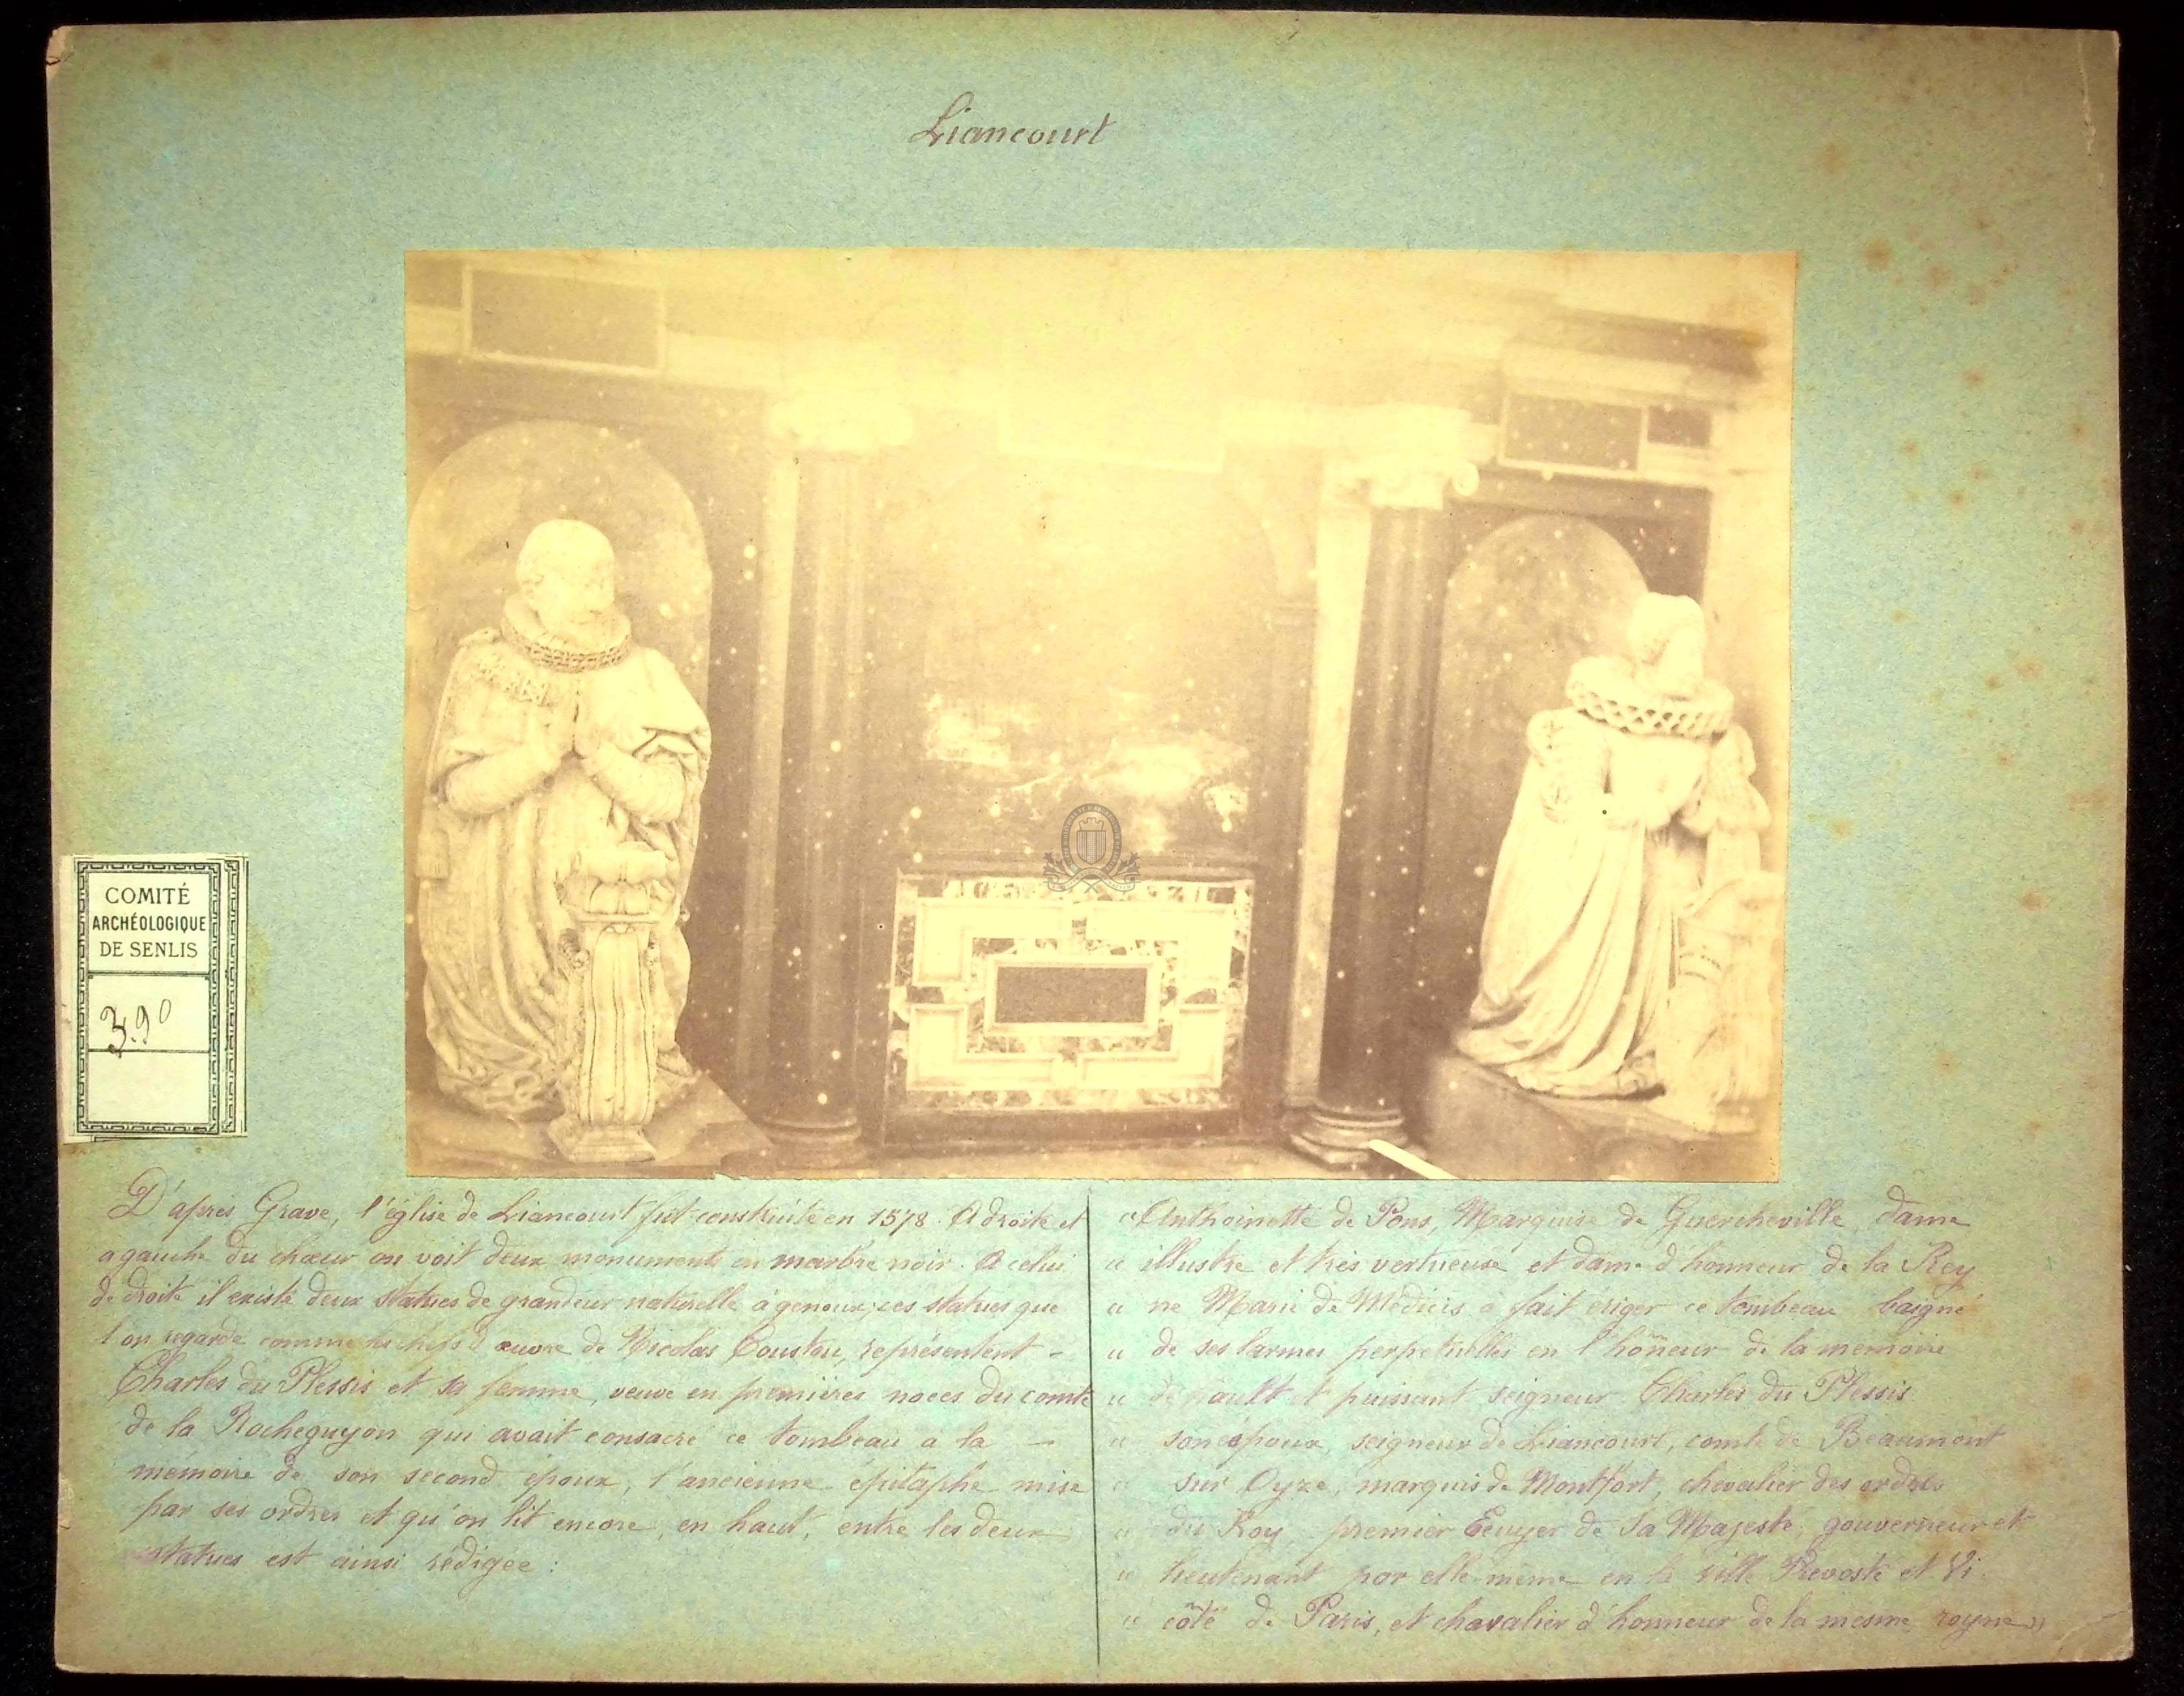 Liancourt
COMITÉ
ARCHÉOLOGIQUE
DE SENLIS
390
D'après Grave, l'église de Liancourt fut construite en 1578. A droite et
a gauche du chœur on voit deux monuments en marbre noir. A celui
de droite il existe deux statues de grandeur naturelle à genoux, ces statues que
l'on regarde comme les chefs d'œuvre de Nicolas Coustou, représentent -
Charles du Plessis et sa femme, veuve en premières noces du comte
de la Rocheguyon qui avait consacré ce tombeau a la -
mémoire de son second époux, l'ancienne épitaphe mise
par ses ordres et qu'on lit encore, en haut, entre les deux
statues est ainsi rédigée :
« Anthoinette de Pons, Marquise de Guercheville, dame
« illustre et très vertueuse et dame d'honneur de la Rey
« ne Marie de Médicis a fait ériger ce tombeau baigné
« de ses larmes perpetuelles en l'honneur de la memoire
« de hault et puissant seigneur Charles du Plessis
« son époux, seigneur de Liancourt, comte de Beaumont
« sur Oyze, marquis de Montfort, chevalier des ordres
« du Roy, premier Ecuyer de Sa Majesté, gouverneur et
« lieutenant por elle même en la ville Prevosté et Vi.
« côté de Paris, et chavalier d'honneur de la mesme royne »